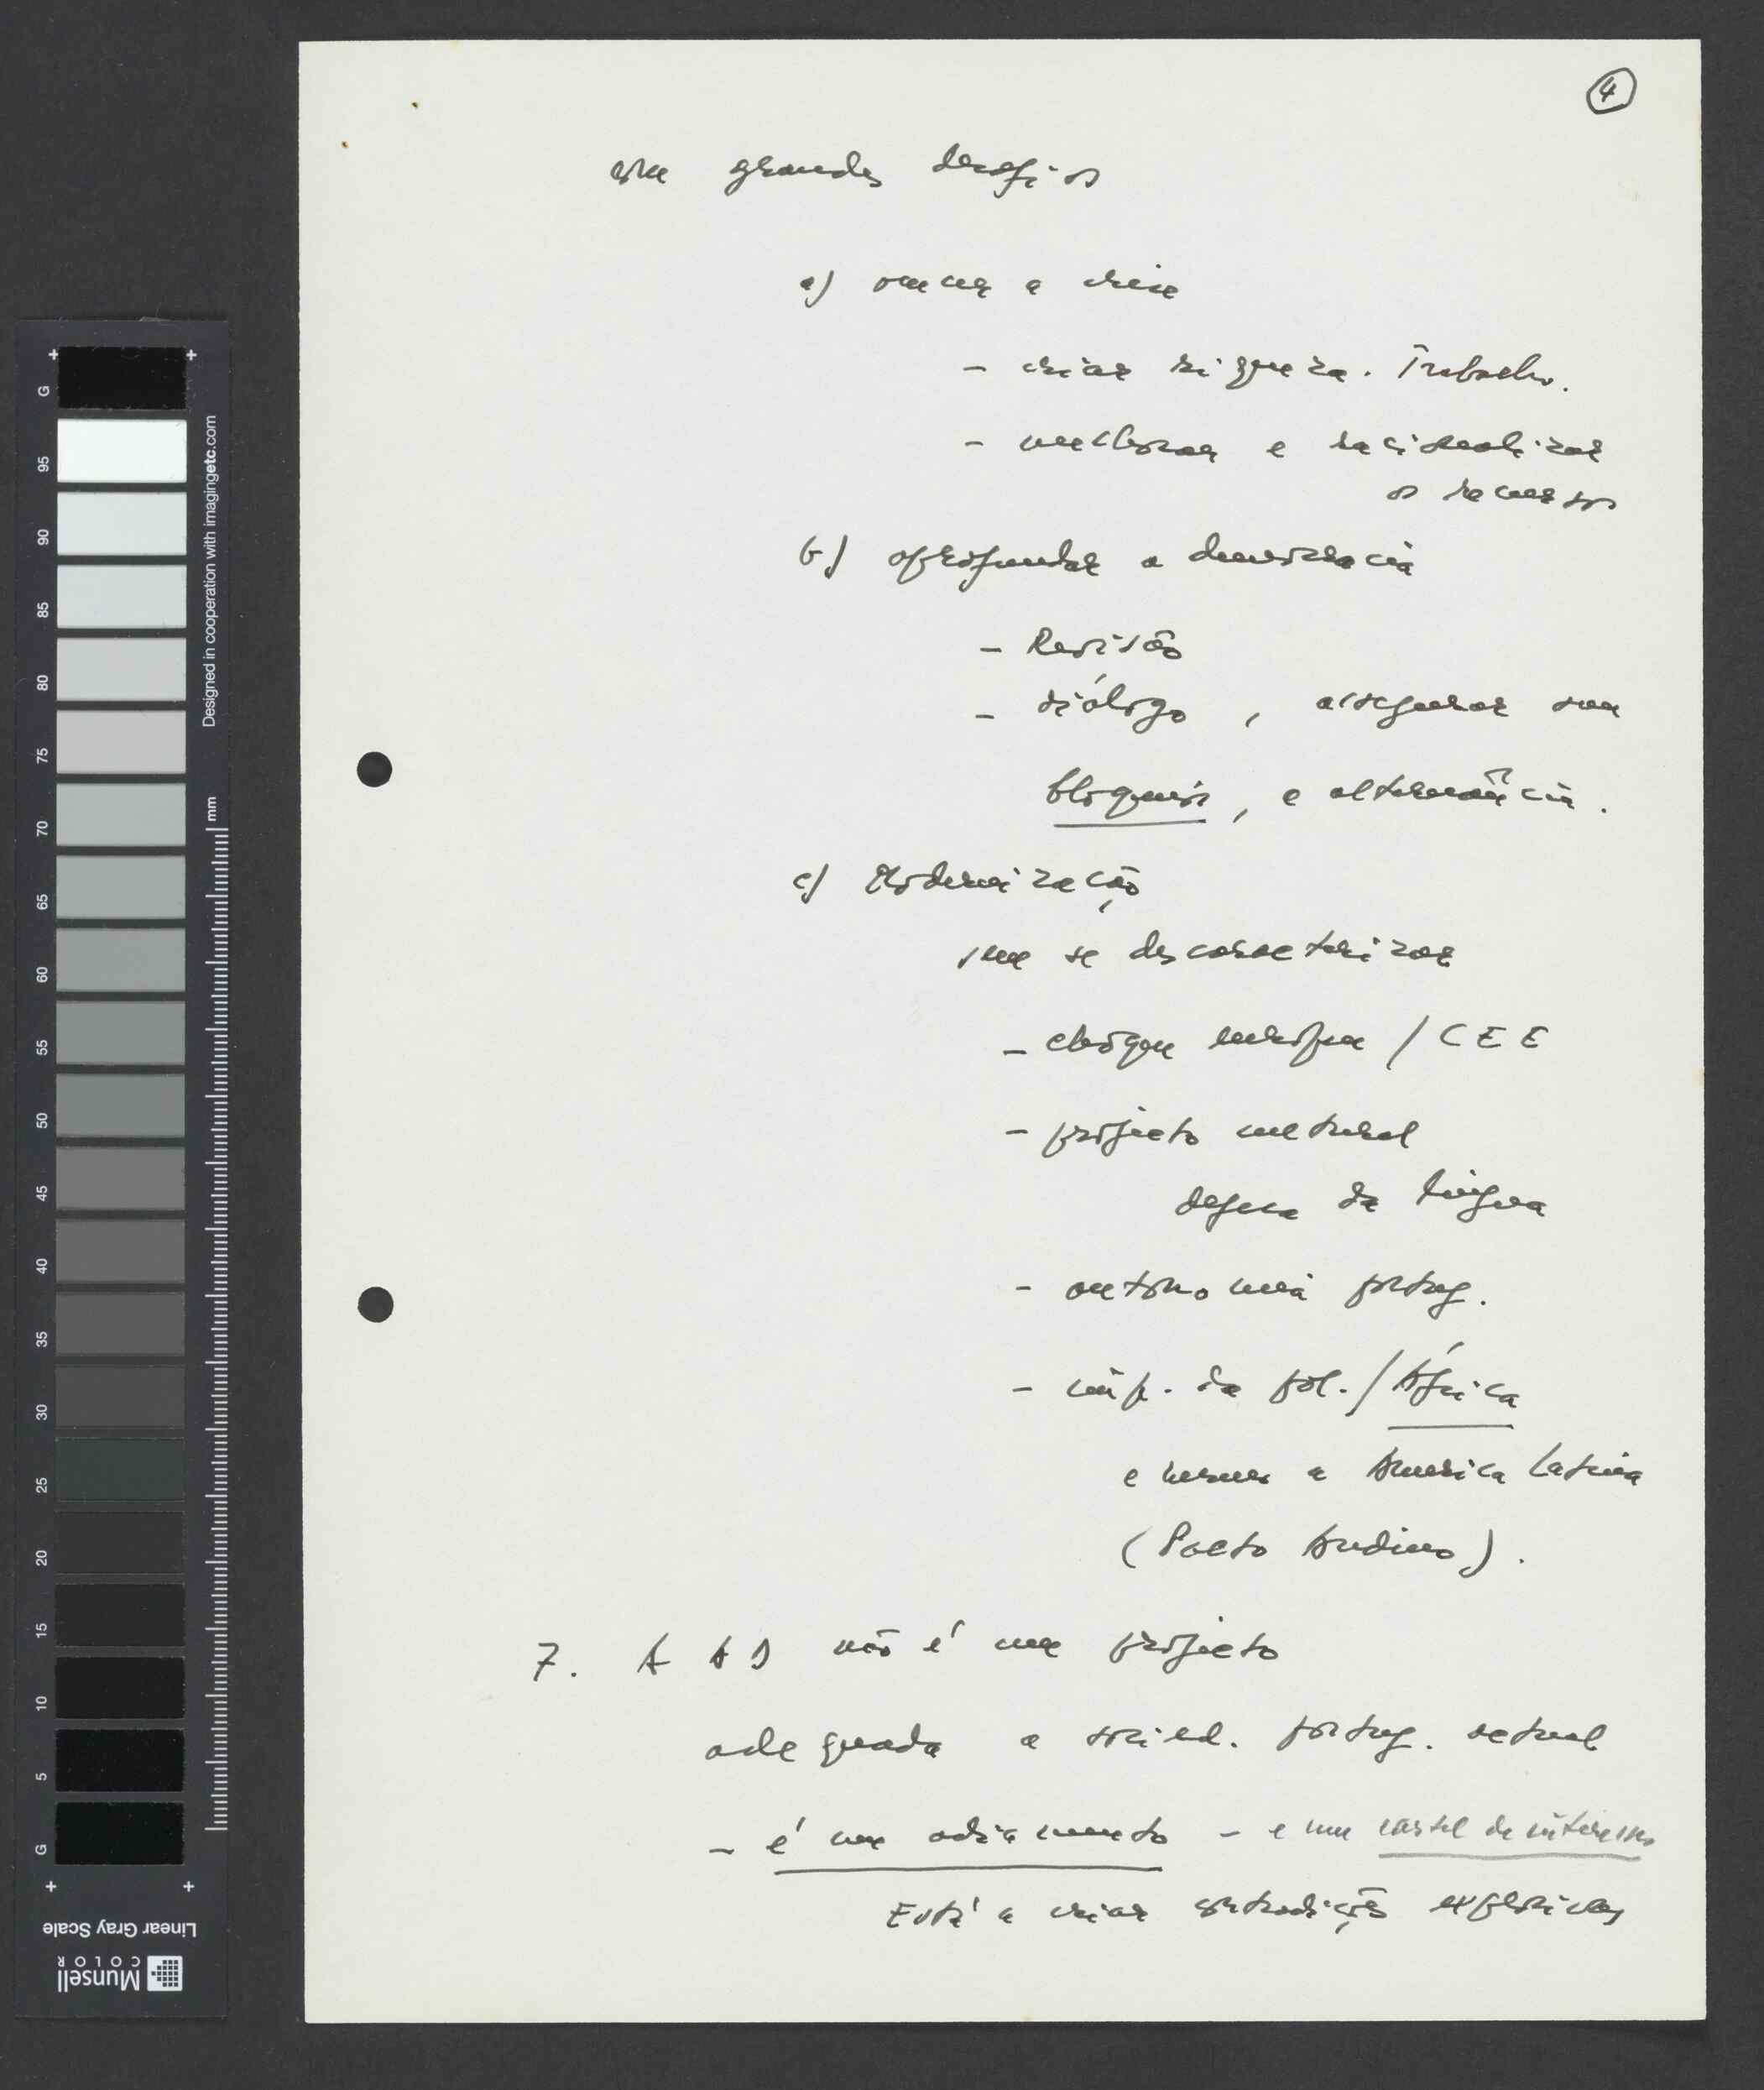 4
grandes desafios
a) vencer a crise
- criar riqueza. Trabalho.
- melhorar e racionalizar
os recursos
b) aprofundar a democracia
- Revisão
- diálogo, assegurar sem
bloqueio, e alternância.
c) Modernização
sem se descaracterizar
- choque europeu / CEE
- projecto cultural
defesa da língua
- autonomia portug.
- imp. da pol. / África
e a America Latina
(Pacto Andino).
7. A AD não é um projecto
adequada a socied. portug. actual
- é um adiamento - e um cartel de interesses
Está a criar contradições explosivas
G 95 90 85 80 75 70 65 60 55 50 45 40 35 30 25 20 15 10 5 G
Designed in cooperation with imagingetc.com
mm
Linear Gray Scale
Munsell
COLOR